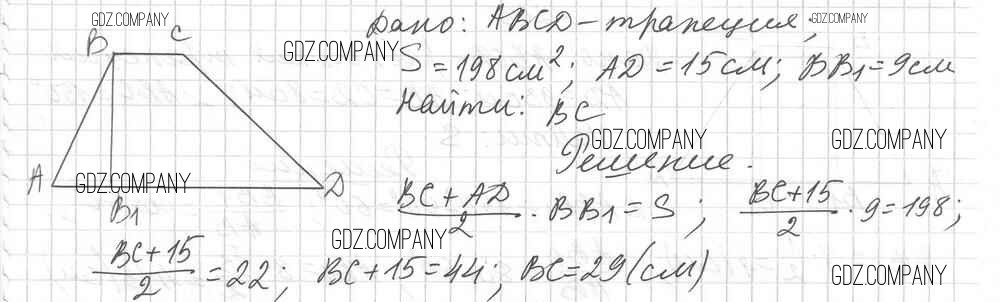 GDZ.COMPANY
Дано: ABCD - трапеция;
GDZ.COMPANY
B C
GDZ.COMPANY
S = 198 см²; AD = 15 см; BB₁ = 9 см
Найти: BC
GDZ.COMPANY
GDZ.COMPANY
Решение.
A D
GDZ.COMPANY
B₁
(BC + AD)/2 · BB₁ = S; (BC + 15)/2 · 9 = 198;
GDZ.COMPANY
(BC + 15)/2 = 22; BC + 15 = 44; BC = 29 (см)
GDZ.COMPANY